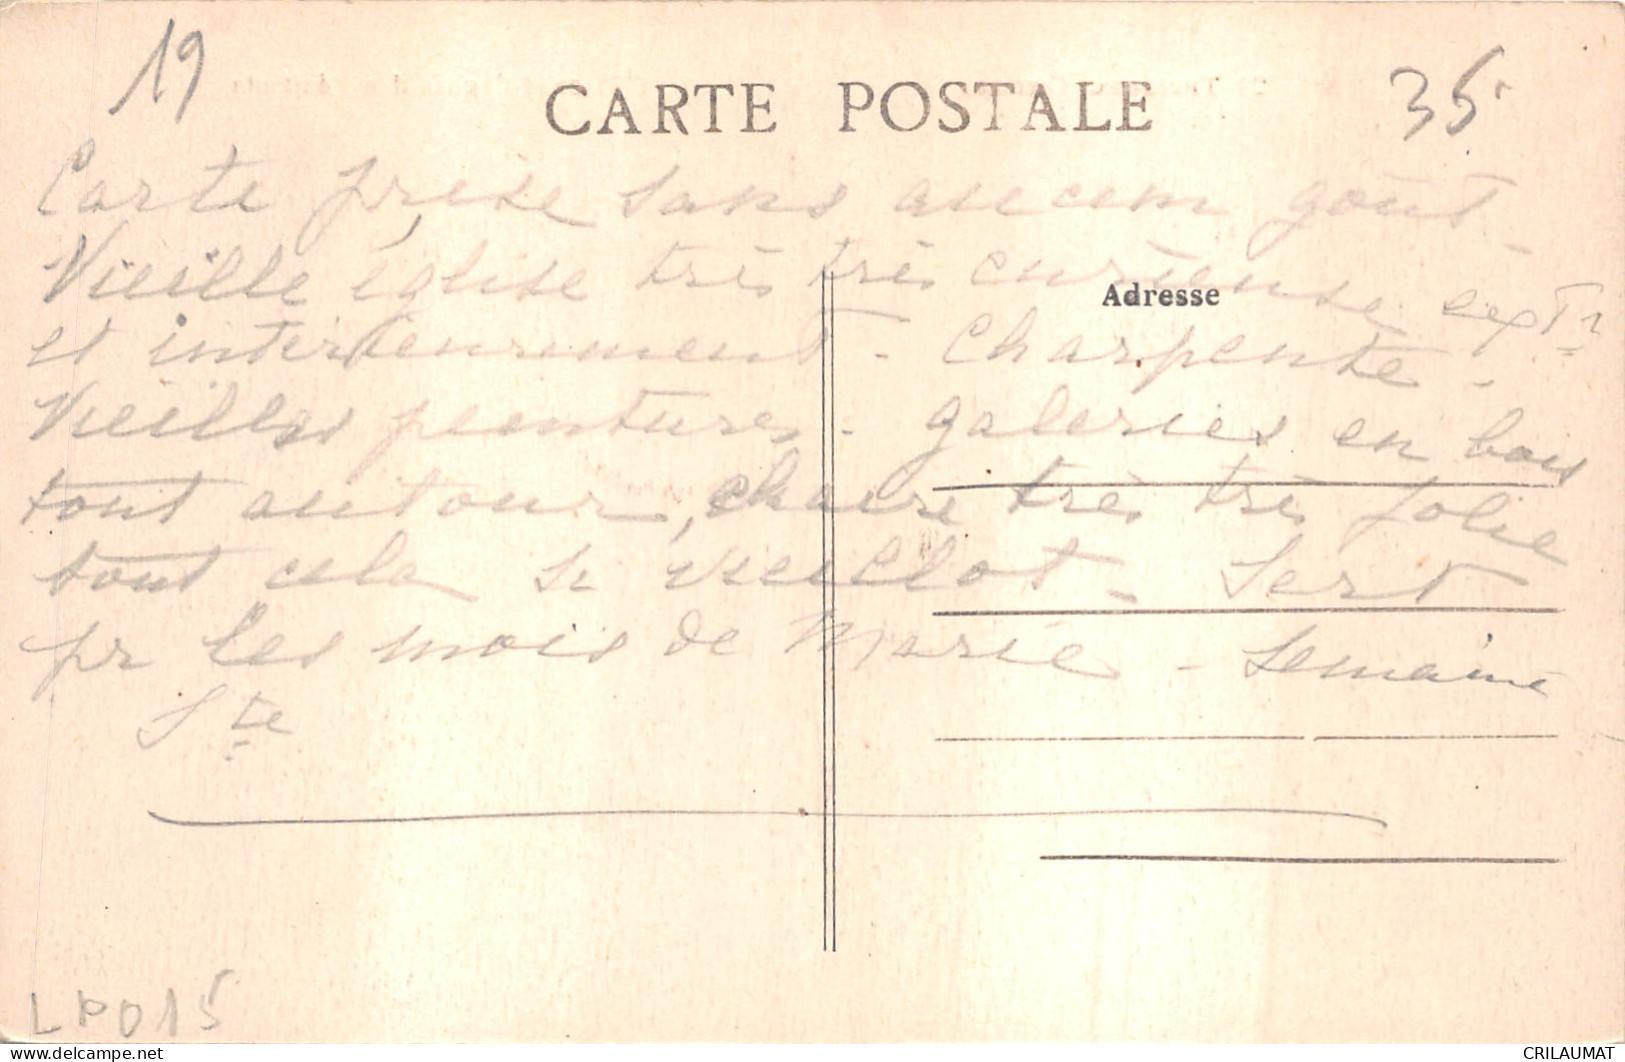 19
35
CARTE POSTALE
Carte prise sans aucun goût -
Vieille église très très curieuse extr
Adresse
et intérieurement - Charpente -
Vieilles peintures - galeries en bois
tout autour, chaire très très jolie
tout cela si vieillot - Sert
pr les mois de Marie - Semaine
Ste
LPD15
delcampe.net
CRILAUMAT